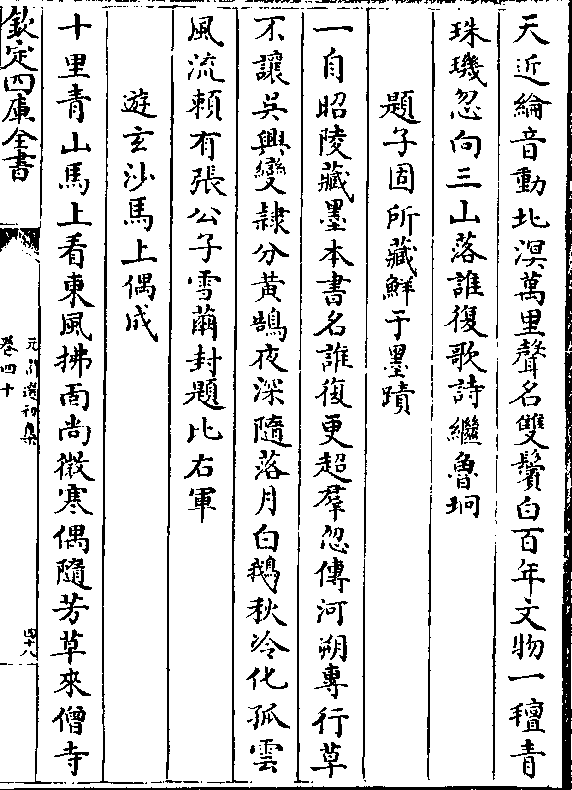 天近綸音動北溟萬里聲名雙鬢白百年文物一氊青
珠璣忽向三山落誰復歌詩繼魯坰
題子固所藏鮮于墨蹟
一自昭陵藏墨本書名誰復更超羣忽傳河朔專行草
不讓吳興變隷分黃鵠夜深隨落月白鵝秋冷化孤雲
風流頼有張公子雪繭封題比右軍
遊玄沙馬上偶成
十里青山馬上看東風拂面尚微寒偶隨芳草來僧寺
欽定四庫全書
元詩選初集
卷四十
四十八